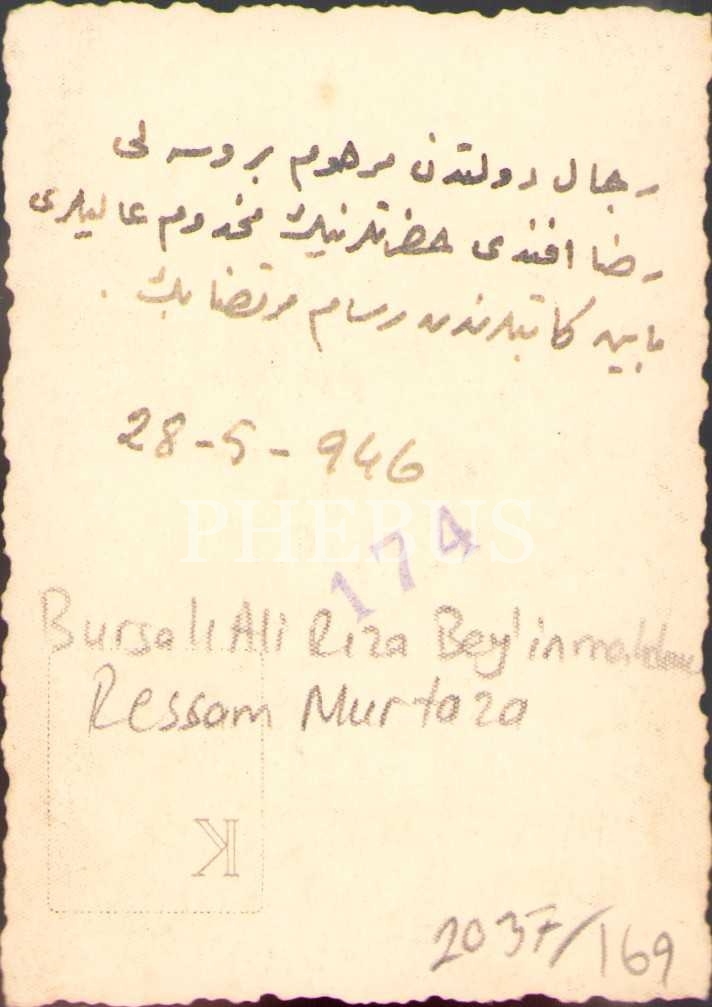 رجال دولتدن مرحوم بروسه لى
رضا افندى حضرتلرينك مخدوم عاليلرى
مابين كاتبلرندن رسام مرتضا بك .
28-5-946
PHEBUS
174
Bursalı Ali Rıza Bey'in
Ressam Murtaza
K
2037/169